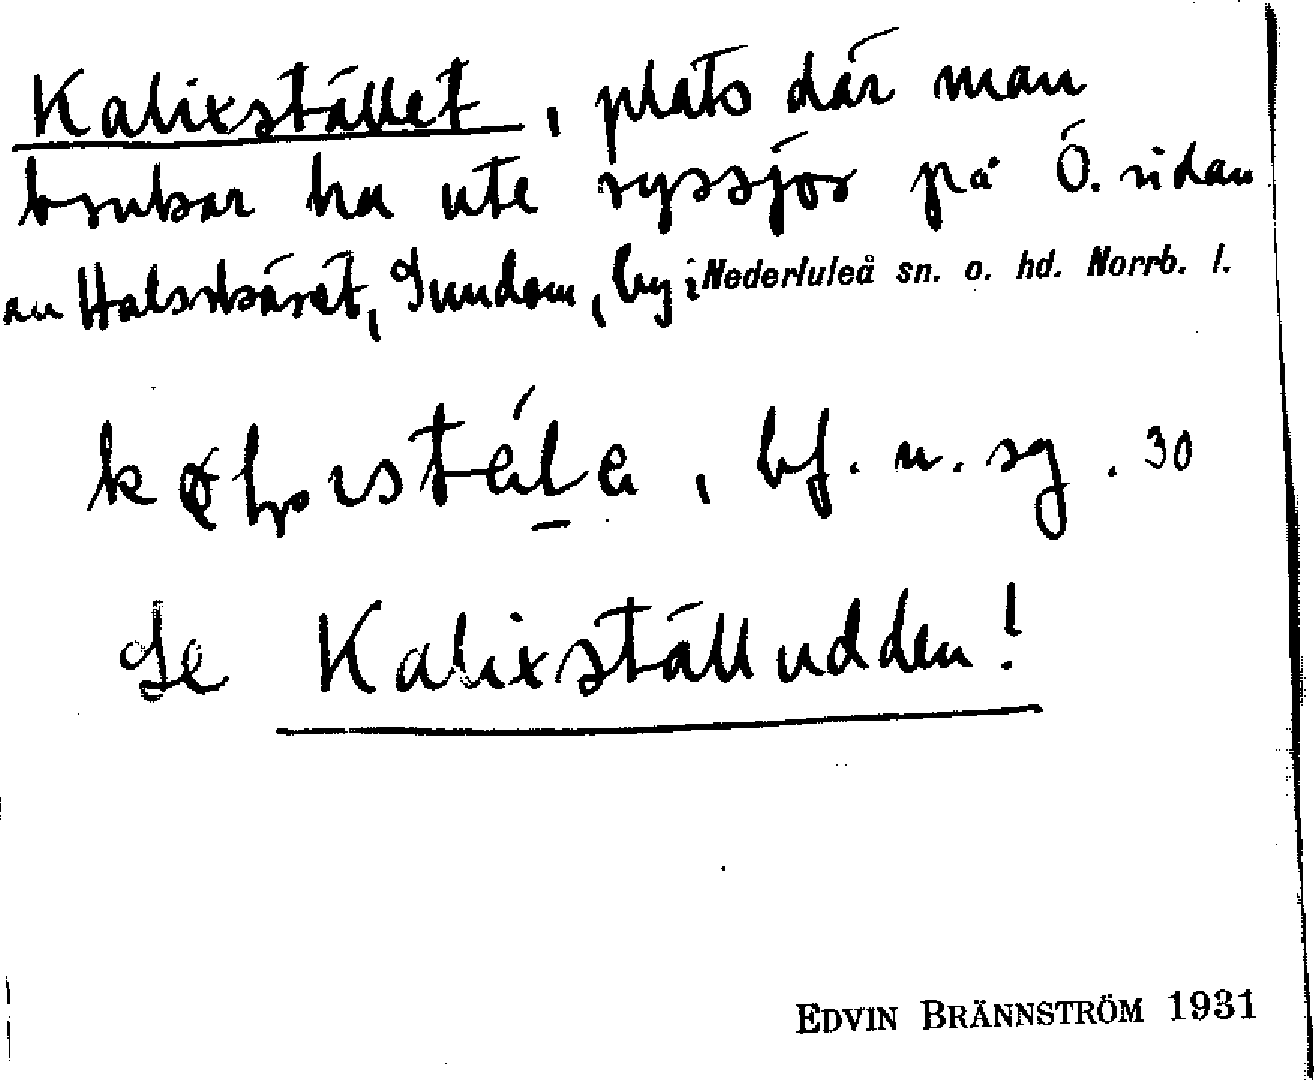 Kalixstället, plats där man
brukar ha ute ryssjor på Ö. sidan
av Halsskäret, Sundom, by i Nederluleå sn. o. hd. Norrb. l.
bf. n. sg. 30
Se Kalixställudden!
EDVIN BRÄNNSTRÖM 1931